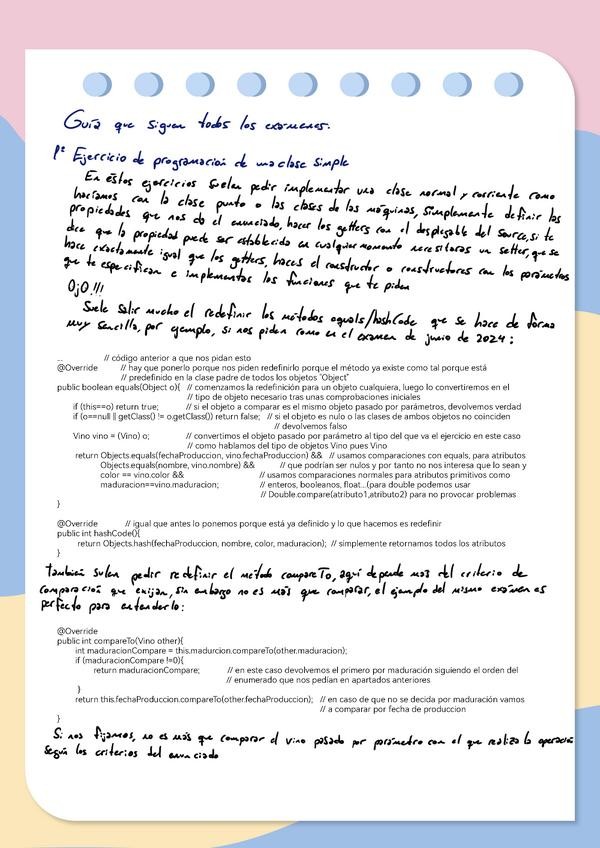 Guía que siguen todos los exámenes.
1º Ejercicio de programación de una clase simple
En estos ejercicios suelen pedir implementar una clase normal y corriente como
hacíamos con la clase punto o las clases de las máquinas, simplemente definir las
propiedades que nos da el enunciado, hacer los getters con el desplegable del Source, si te
dice que la propiedad puede ser establecida en cualquier momento necesitaras un setter, que se
hace exactamente igual que los getters, haces el constructor o constructores con los parámetros
que te especifican e implementas las funciones que te piden
OJO!!!
Suele salir mucho el redefinir los métodos equals/hashCode que se hace de forma
muy sencilla, por ejemplo, si nos piden como en el examen de junio de 2024:
... // código anterior a que nos pidan esto
@Override // hay que ponerlo porque nos piden redefinirlo porque el método ya existe como tal porque está
// predefinido en la clase padre de todos los objetos "Object"
public boolean equals(Object o){ // comenzamos la redefinición para un objeto cualquiera, luego lo convertiremos en el
// tipo de objeto necesario tras unas comprobaciones iniciales
if (this==o) return true; // si el objeto a comparar es el mismo objeto pasado por parámetros, devolvemos verdad
if (o==null || getClass() != o.getClass()) return false; // si el objeto es nulo o las clases de ambos objetos no coinciden
// devolvemos falso
Vino vino = (Vino) o; // convertimos el objeto pasado por parámetro al tipo del que va el ejercicio en este caso
// como hablamos del tipo de objetos Vino pues Vino
return Objects.equals(fechaProduccion, vino.fechaProduccion) && // usamos comparaciones con equals, para atributos
Objects.equals(nombre, vino.nombre) && // que podrían ser nulos y por tanto no nos interesa que lo sean y
color == vino.color && // usamos comparaciones normales para atributos primitivos como
maduracion==vino.maduracion; // enteros, booleanos, float...(para double podemos usar
// Double.compare(atributo1,atributo2) para no provocar problemas
}
@Override // igual que antes lo ponemos porque está ya definido y lo que hacemos es redefinir
public int hashCode(){
return Objects.hash(fechaProduccion, nombre, color, maduracion); // simplemente retornamos todos los atributos
}
también suelen pedir redefinir el método compareTo, aquí depende más del criterio de
comparación que exijan, sin embargo no es más que comparar, el ejemplo del mismo examen es
perfecto para entenderlo:
@Override
public int compareTo(Vino other){
int maduracionCompare = this.madurcion.compareTo(other.maduracion);
if (maduracionCompare !=0){
return maduracionCompare; // en este caso devolvemos el primero por maduración siguiendo el orden del
// enumerado que nos pedían en apartados anteriores
}
return this.fechaProduccion.compareTo(other.fechaProduccion); // en caso de que no se decida por maduración vamos
// a comparar por fecha de produccion
}
Si nos fijamos, no es más que comparar el vino pasado por parámetro con el que realiza la operación
según los criterios del enunciado